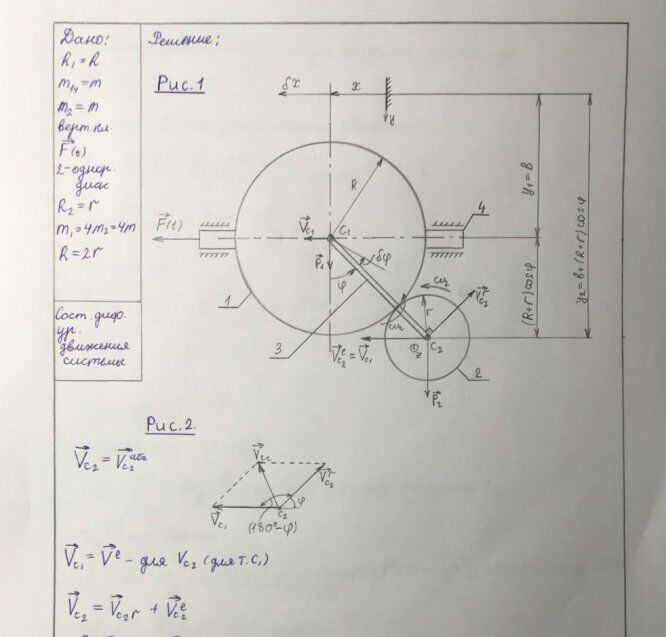 Дано:
R₁ = R
m₁₄ = m
m₂ = m
верт. пл.
F⃗(t)
2-однор.
диск
R₂ = r
m₁ = 4m₂ = 4m
R = 2r
Сост. диф.
ур.
движения
системы
Решение:
Рис. 1
δx
x
y
R
y₁ = B
y₂ = b + (R+r) cos φ
(R+r) cos φ
4
F⃗(t)
V⃗c₁
C₁
P⃗₁
φ
δφ
ω₂
V⃗ʳc₂
r
1
3
ω₂
V⃗ᵉc₂ = V⃗c₁
z
C₂
2
P⃗₂
Рис. 2.
V⃗c₂ = V⃗ᵃᵇˢc₂
V⃗c₂
V⃗ʳc₂
V⃗c₁
C₂
φ
(180°-φ)
V⃗c₁ = V⃗ᵉ - для Vc₂ (для т. C₁)
V⃗c₂ = V⃗c₂r + V⃗ᵉc₂